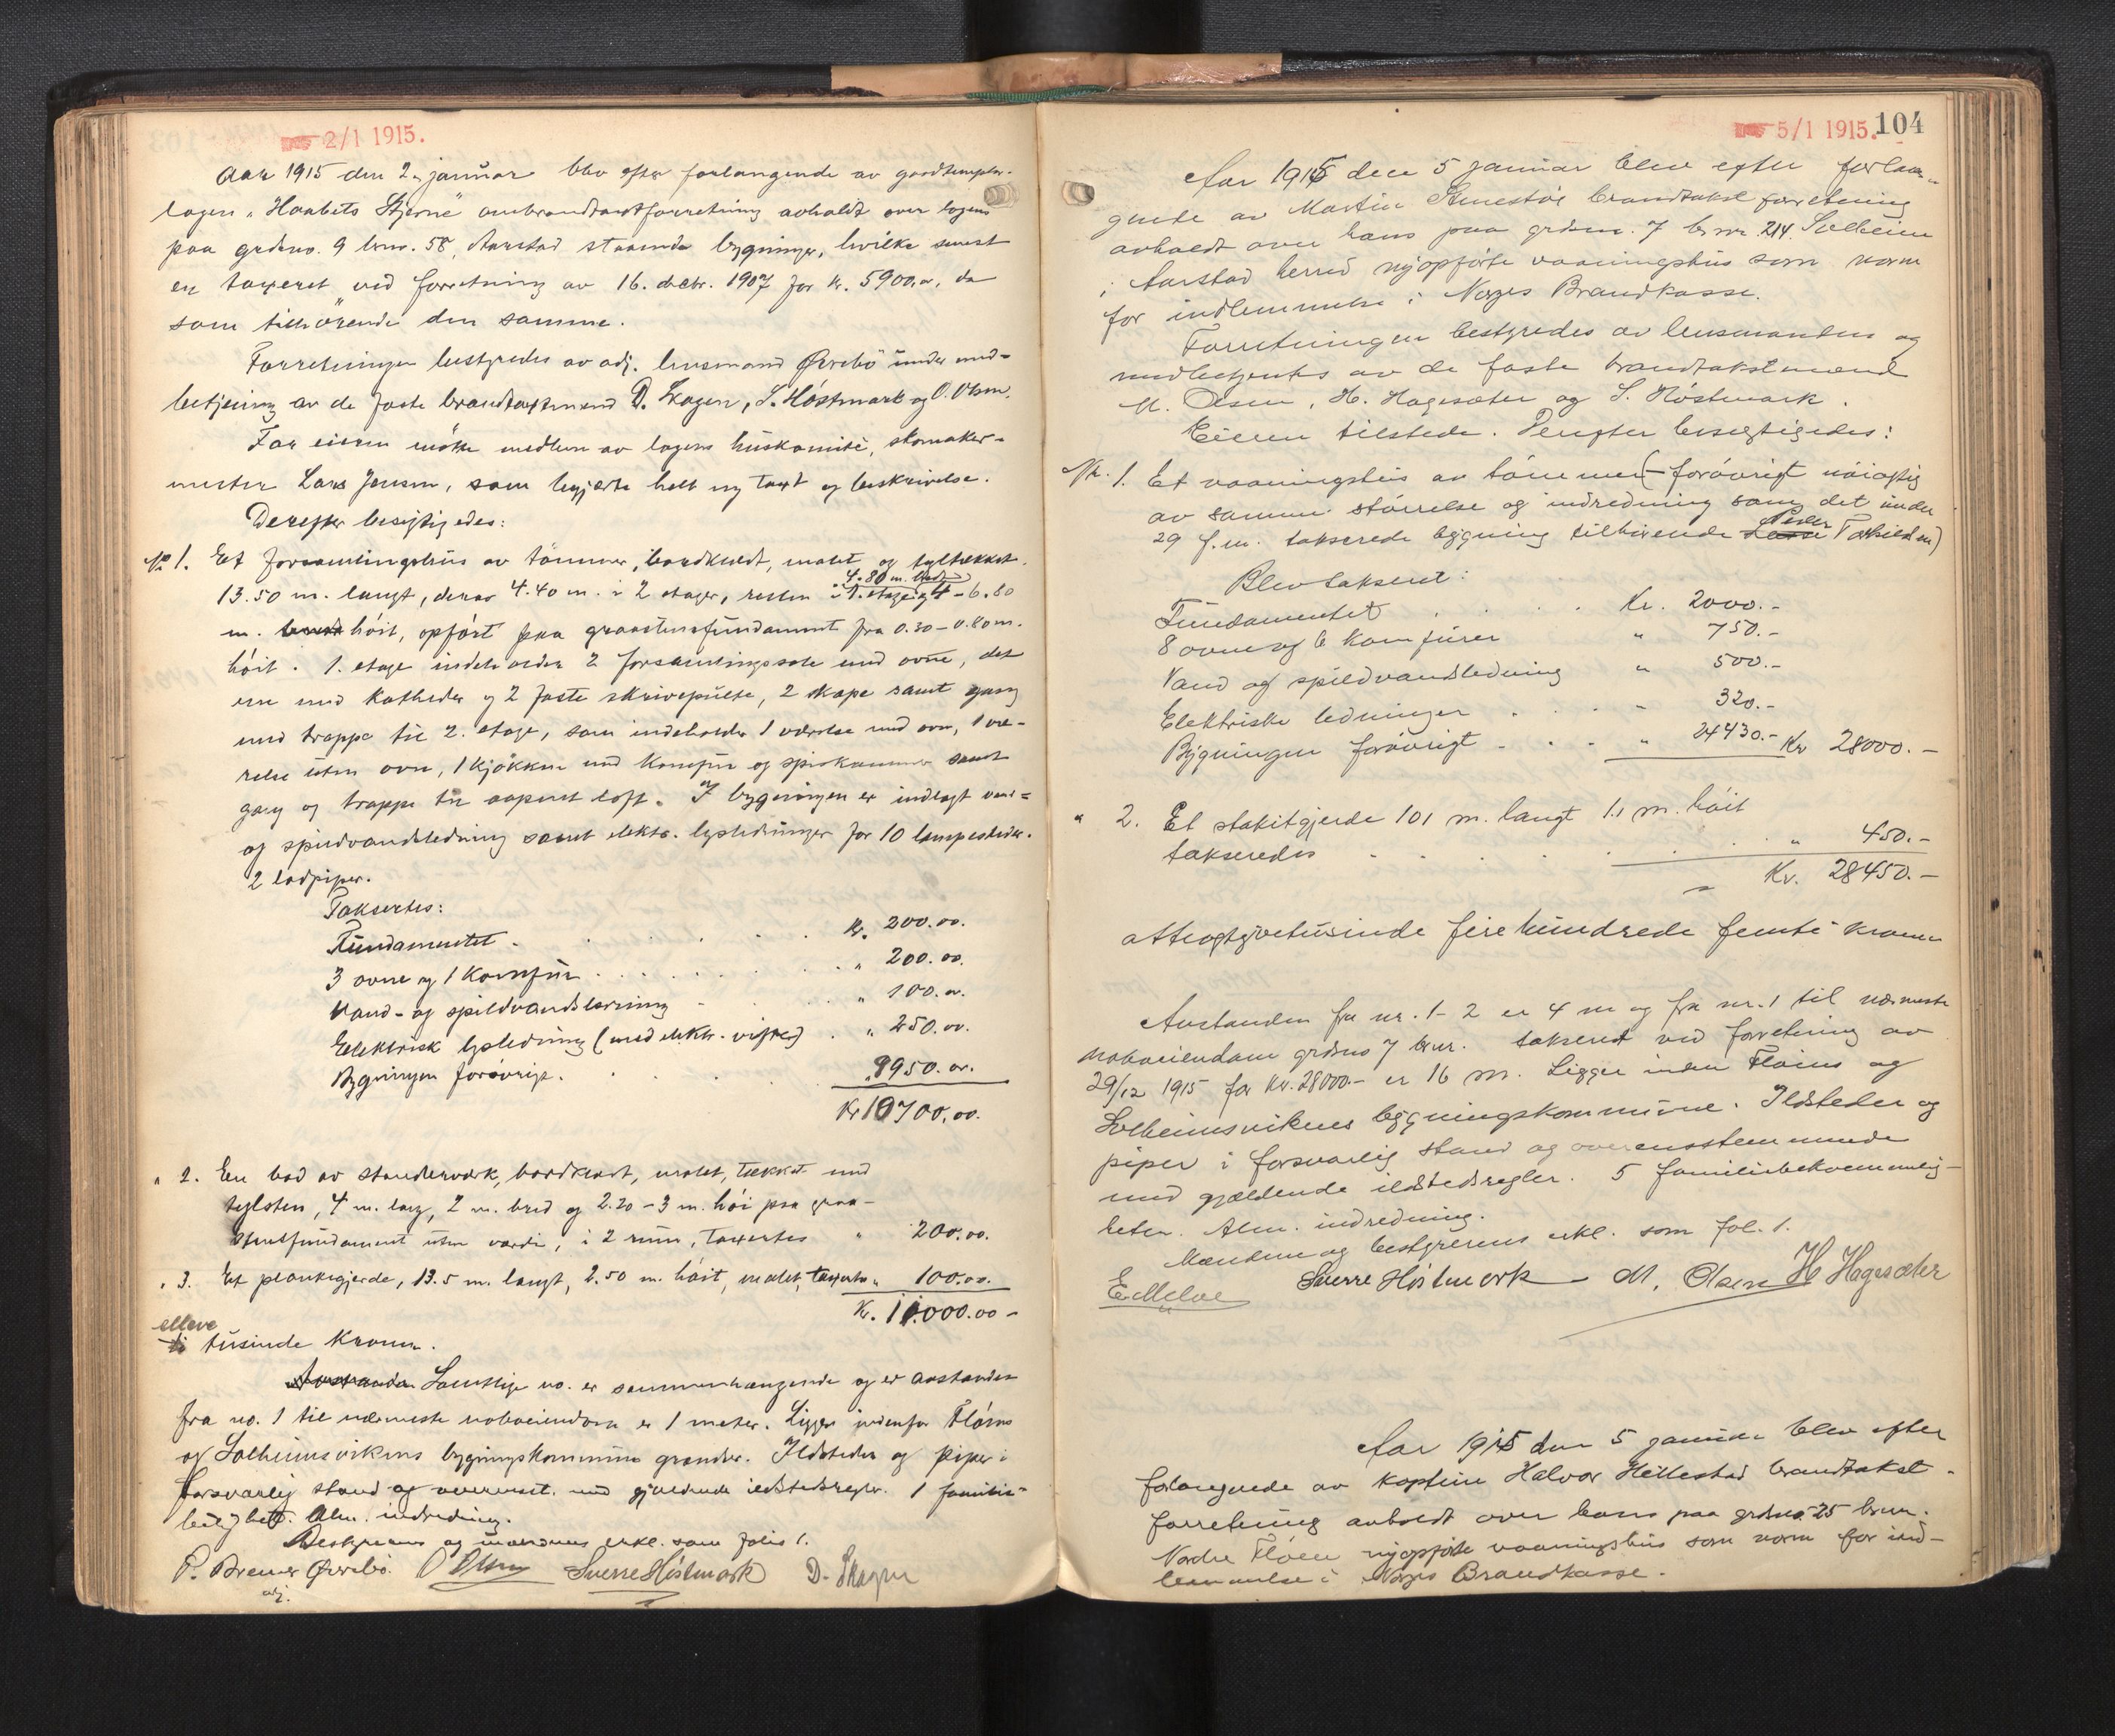 2/1 1915.
Aar 1915 den 2. januar blev efter forlangende av goodtemplar-
logen "Haabets Stjerne" ombrandtaxtforretning avholdt over logens
paa grdsno. 9 brno. 58, Aarstad staaende bygninger, hvilke senest
er taxeret ved forretning av 16. decbr. 1907 for kr. 5900,00, da
som tilhørende den samme.
Forretningen bestyredes av adj. lensmand Øvrebö under med-
betjening av de faste brandtaxtmænd D. Skagen, S. Höstmark og O. Olsen.
For eieren mötte medlem av logens huskomite, skomaker-
mester Lars Jensen, som begjærte helt ny taxt og beskrivelse.
Derefter besigtigedes:
No 1. Et forsamlingshus av tömmer, bordklædt, malet og tegltækket.
4.80 m. bredt
13.50 m. langt, derav 4.40 m. i 2 etager, resten i 1. etage og 4 - 6.80
m. höit, opfört paa graastensfundament fra 0.30 - 0.80 m.
höit. 1. etage indeholder 2 forsamlingssale med ovne, det
ene med katheder og 2 faste skrivepulte, 2 skape samt gang
med trappe til 2. etage, som indeholder 1 værelse med ovn, 1 væ-
relse uten ovn, 1 kjökken med komfur og spiskammer samt
gang og trappe til aapent loft. I bygningen er indlagt vand-
og spildvandsledning samt elektr. lysledninger for 10 lampesteder.
2 lodpiper.
Taksertes:
Fundamentet . . . . . kr. 200.00.
3 ovne og 1 komfur . . . . . " 200.00.
Vand- og spildvandsledning - . . " 100.00.
Elektrisk lysledning (med elektr. vifter) . " 250.00.
Bygningen forøvrigt . . . . " 9950.00.
Kr 10700,00.
" 2. En bod av stenderværk, bordklædt, malet, tækket med
teglsten, 4 m. lang, 2 m. bred og 2.20 - 3 m. höi paa graa-
stensfundament uten værdi, i 2 rum, taxertes " 200.00.
" 3. Et plankegjerde, 13.5 m. langt, 2.50 m. höit, malet, taxertes " 100.00.
Kr. 11000.00 -
elleve
ti tusinde kroner.
Avstanden Samtlige no. er sammenhængende og er avstanden
fra no. 1 til nærmeste naboeiendom er 1 meter. Ligger indenfor Flöens
og Solheimsvikens bygningskommune grændser. Ildsteder og piper i
forsvarlig stand og overenst. med gjældende ildstedsregler. 1 familie-
leilighet. Alm. indredning.
Bestyrerens og mændenes erkl. som folio 1.
P. Bremer Øvrebö. O Olsen Sverre Höstmark D. Skagen
adj.
5/1 1915. 104
Aar 1915 den 5 januar blev efter forlan-
gende av Martin brandtakst forretning
avholdt over hans paa grdsn. 7 brnr. 214. Solheim
i Aarstad herred nyopförte vaaningshus som norm
for indlemmelse i Norges Brandkasse.
Forretningen bestyredes av lensmanden og
medbetjentes av de faste brandtakstmænd
M. Olsen, H. Hagesæter og S. Höstmark.
Eieren tilstede. Derefter besigtigedes:
Nr. 1. Et vaaningshus av tömmer (- forövrigt nöiagtig
av samme störrelse og indredning som det under
Peder
29 f.m. takserede bygning tilhörende Lasse Torkildsen)
Blev takseret:
Fundamentet . . . . Kr. 2000.-
8 ovne og 6 komfurer " 750.-
Vand og spildvandsledning " 500.-
Elektriske ledninger . . . - 320.-
Bygningen forövrigt - . . . " 24430.- Kr 28000.-
" 2. Et stakitgjerde 101 m. langt 1.1 m. höit
takseredes . . . . . " 450.-
Kr. 28450.-
otteogtyvetusinde fire hundrede femti kroner
Avstanden fra nr. 1 - 2 er 4 m og fra nr. 1 til nærmeste
naboeiendom grdsno 7 brnr. takseret ved forretning av
29/12 1915 for Kr. 28000.- er 16 m. Ligger inden Flöens og
Solheimsvikens bygningskommune. Ildsteder og
piper i forsvarlig stand og overensstemmende
med gjældende ildstedsregler. 5 familiebekvemmelig-
heter. Alm. indredning.
Mændene og bestyrerens erkl. som fol. 1.
E Melve Sverre Höstmark M. Olsen H Hagesæter
Aar 1915 den 5 januar blev efter
forlangende av kaptein Halvor Hellestad brandtakst-
forretning avholdt over hans paa grdsno 25 brnr.
Nordre Flöen nyopförte vaaningshus som norm for ind-
lemmelse i Norges Brandkasse.